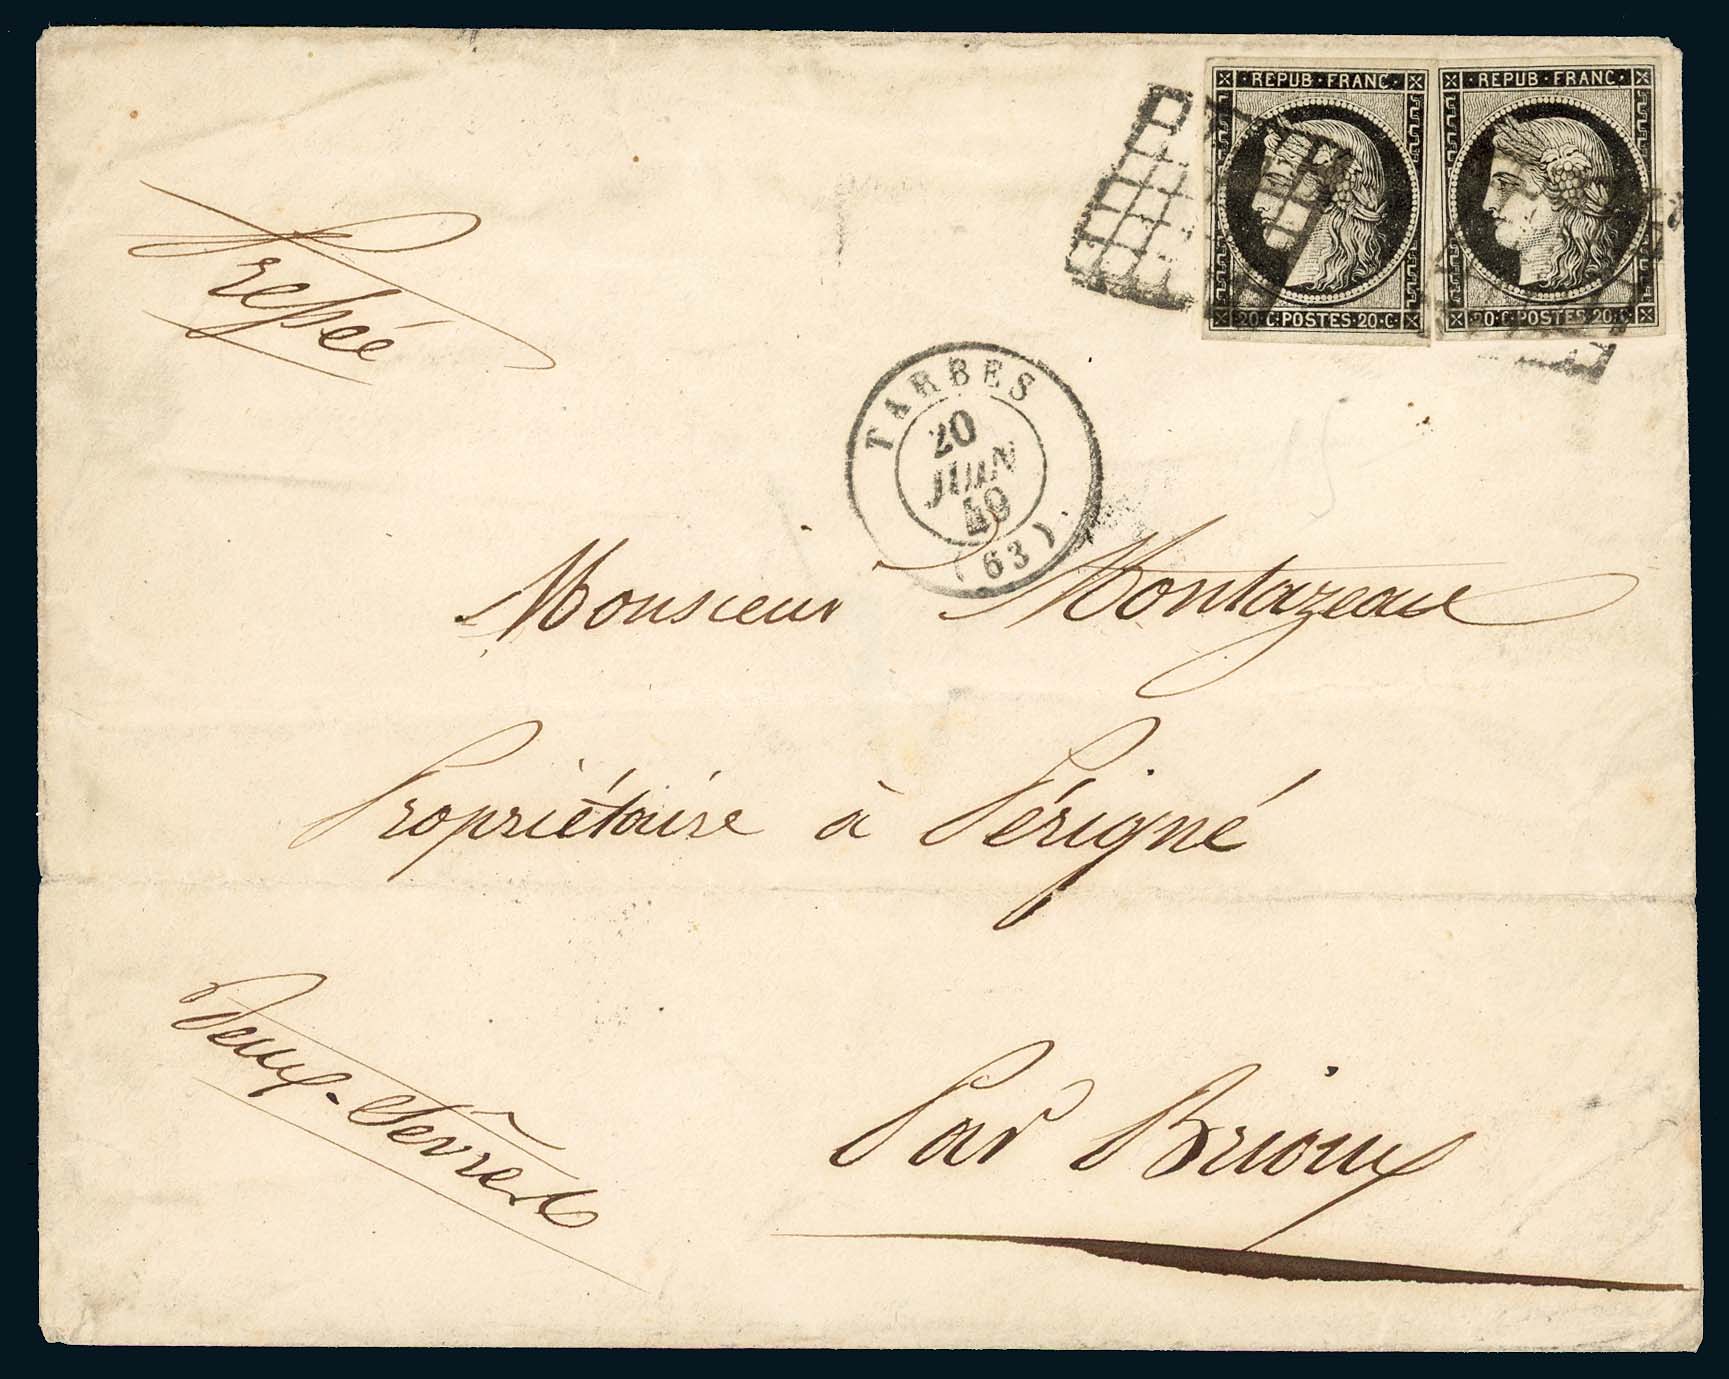 REPUB · FRANC · REPUB · FRANC ·
20 · C · POSTES · 20 · C · 20 · C · POSTES · 20 · C ·
Prepéé
TARBES
20
JUIN
49
(63)
Monsieur Montazeau
Propriétaire à Périgné
Deux-Sèvres
Par Brioux